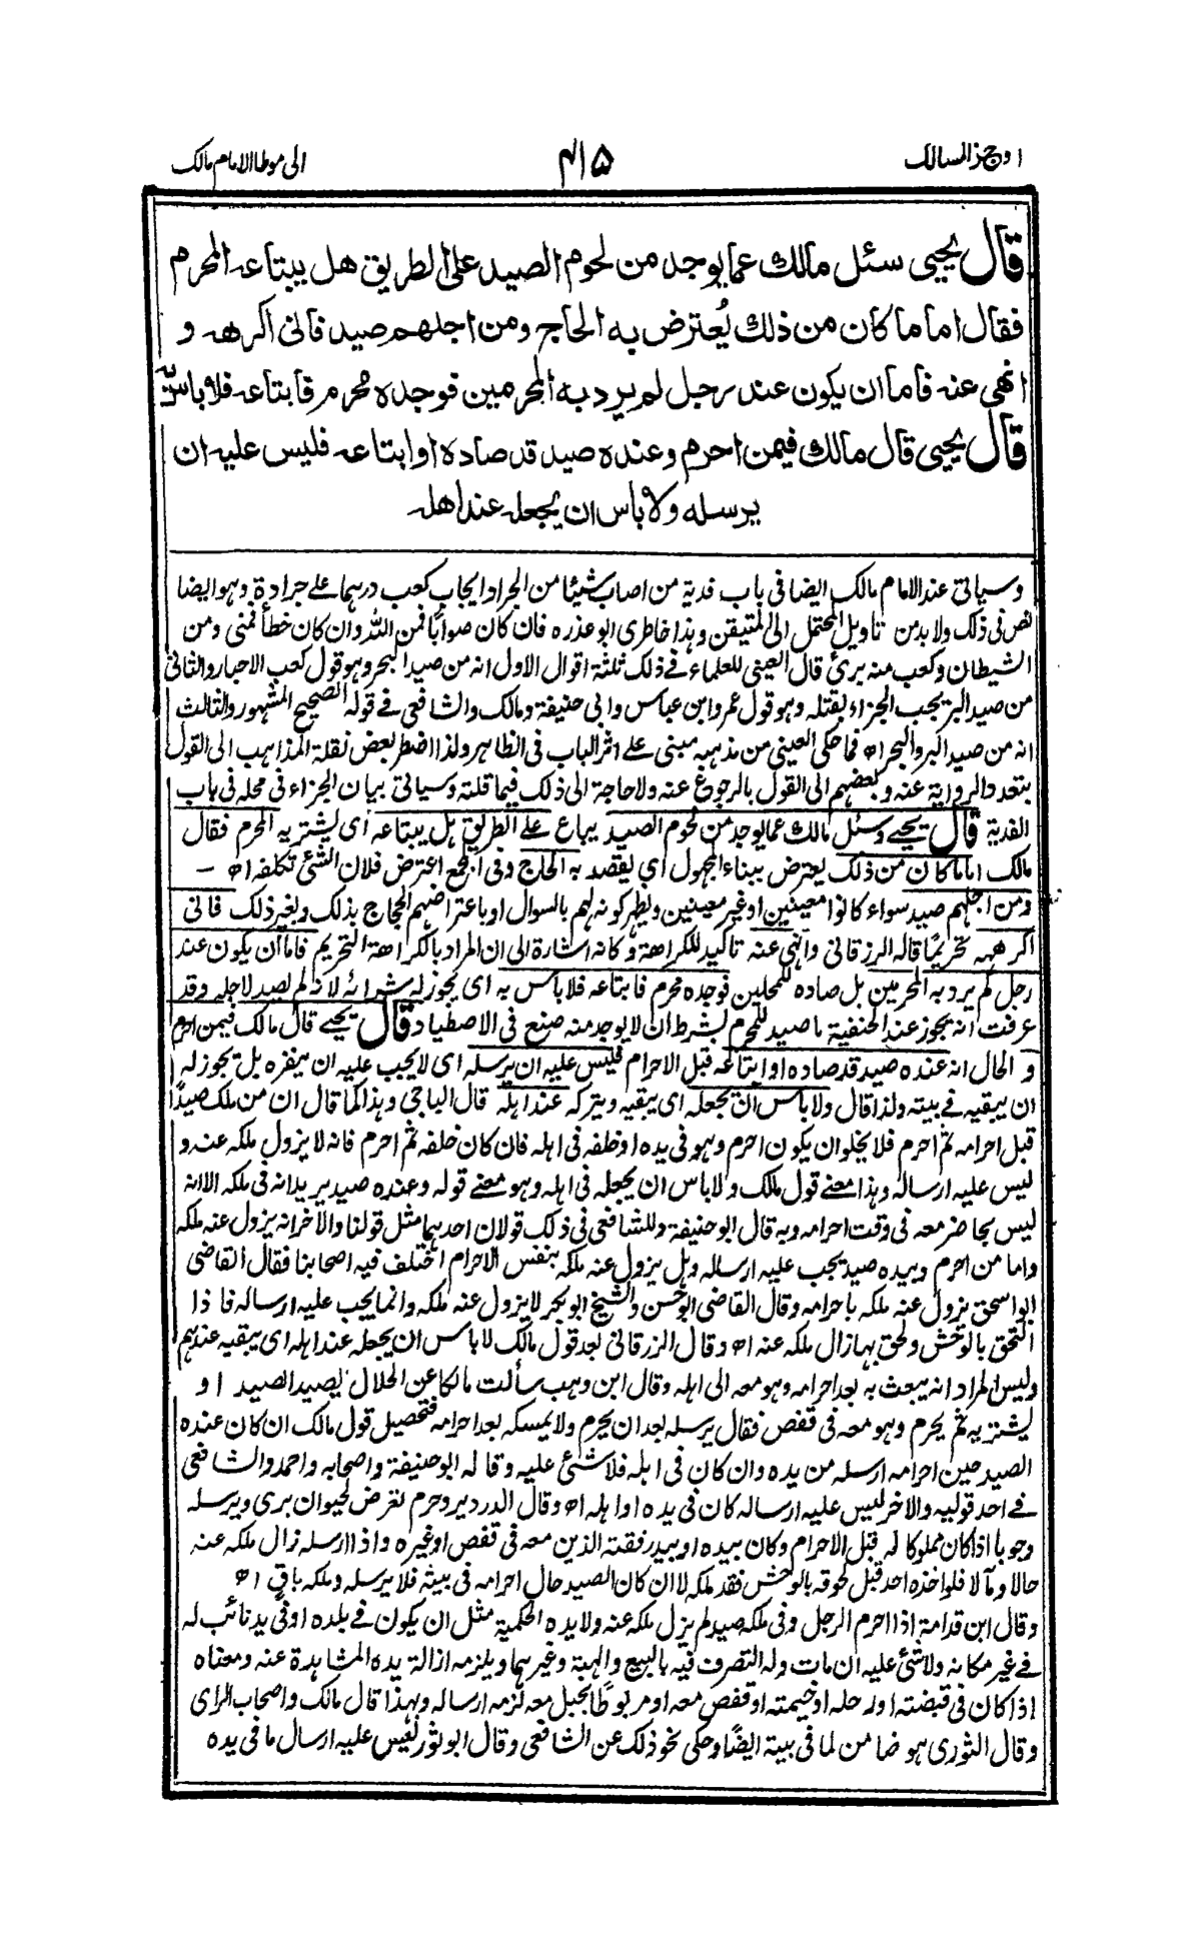 اوجز المسالك
٤١٥
الى موطا الامام مالك
قال يحيى سئل مالك عما يوجد من لحوم الصيد على الطريق هل يبتاعه المحرم
فقال اما ما كان من ذلك يُعترض به الحاج ومن اجلهم صيد فانى اكرهه و
انهى عنه فاما ان يكون عند رجل لم يرد به المحرمين فوجده محرم فابتاعه فلا باس به
قال يحيى قال مالك فيمن احرم وعنده صيد قد صاده او ابتاعه فليس عليه ان
يرسله ولا باس ان يجعله عند اهله
وسياتى عند الامام مالك ايضا فى باب فدية من اصاب شيئا من الجراد ايجاب كعب درهما على جرادة وهو ايضا
نص فى ذلك ولا بد من تاويل المحتمل الى المتيقن وهذا خاطرى ابو عذره فان كان صوابا فمن الله وان كان خطأ فمنى ومن
الشيطان وكعب منه برئ قال العينى للعلماء فى ذلك ثلثة اقوال الاول انه من صيد البحر وهو قول كعب الاحبار والثانى
من صيد البر يجب الجزاء بقتله وهو قول عمر وابن عباس وابى حنيفة ومالك والشافعى فى قوله الصحيح المشهور والثالث
انه من صيد البر والبحر اه فما حكى العينى من مذهبه مبنى على اثر الباب فى الظاهر ولذا اضطر بعض نقلة المذاهب الى القول
بتعدد الرواية عنه وبعضهم الى القول بالرجوع عنه ولا حاجة الى ذلك فيما قلته وسياتى بيان الجزاء فى محله فى باب
الفدية قال يحيى وسئل مالك عما يوجد من لحوم الصيد يباع على الطريق هل يبتاعه اى يشتريه المحرم فقال
مالك اما ما كان من ذلك يعترض ببناء المجهول اى يقصد به الحاج وفى المجمع اعترض فلان الشئ تكلفه اه -
ومن اجلهم صيد سواء كانوا معينين او غير معينين ويظهر كونه لهم بالسوال او باعتراضهم الحجاج بذلك وبغير ذلك فانى
اكرهه تحريمًا قاله الزرقانى وانهى عنه تاكيد للكراهة وكانه اشارة الى ان المراد بالكراهة التحريم فاما ان يكون عند
رجل لم يرد به المحرمين بل صاده للمحلين فوجده محرم فابتاعه فلا باس به اى يجوز له شرائه لانه لم يصد لاجله وقد
عرفت انه يجوز عند الحنفية ما صيد للمحرم بشرط ان لا يوجد منه صنع فى الاصطياد قال يحيى قال مالك فيمن احرم
و الحال انه عنده صيد قد صاده او ابتاعه قبل الاحرام فليس عليه ان يرسله اى لا يجب عليه ان ينفره بل يجوز له
ان يبقيه فى بيته ولذا قال ولا باس ان يجعله اى يبقيه ويتركه عند اهله قال الباجى وهذا كما قال ان من ملك صيدًا
قبل احرامه ثم احرم فلا يخلو ان يكون احرم وهو فى يده او خلفه فى اهله فان كان خلفه ثم احرم فانه لا يزول ملكه عنه و
ليس عليه ارساله وهذا معنے قول مالك ولا باس ان يجعله فى اهله وهو معنے قوله وعنده صيد يريد انه فى ملكه الا انه
ليس بحاضر معه فى وقت احرامه وبه قال ابو حنيفة وللشافعى فى ذلك قولان احدهما مثل قولنا والاخر انه يزول عنه ملكه
واما من احرم وبيده صيد يجب عليه ارساله وهل يزول عنه ملكه بنفس الاحرام اختلف فيه اصحابنا فقال القاضى
ابو اسحق يزول عنه ملكه باحرامه وقال القاضى ابو الحسن والشيخ ابو بكر لا يزول عنه ملكه وانما يجب عليه ارساله فاذا
التحق بالوحش ولحق بها زال ملكه عنه اه وقال الزرقانى بعد قول مالك لا باس ان يجعله عند اهله اى يبقيه عندهم
وليس المراد انه يبعث به بعد احرامه وهو معه الى اهله وقال ابن وهب سألت مالكا عن الحلال يصيد الصيد او
يشتريه ثم يحرم وهو معه فى قفص فقال يرسله بعد ان يحرم ولا يمسكه بعد احرامه فتحصيل قول مالك ان كان عنده
الصيد حين احرامه ارسله من يده وان كان فى اهله فلا شئ عليه وقاله ابو حنيفة واصحابه واحمد والشافعى
فى احد قوليه والاخر ليس عليه ارساله كان فى يده او اهله اه وقال الدردير وحرم تعرض لحيوان برى ويرسله
وجوبا اذا كان مملوكا له قبل الاحرام وكان بيده او بيد رفقته الذين معه فى قفص او غيره واذا ارسله زال ملكه عنه
حالا ومآلا فلو اخذه احد قبل لحوقه بالوحش فقد ملكه لا ان كان الصيد حال احرامه فى بيته فلا يرسله وملكه باق اه
وقال ابن قدامة اذا احرم الرجل وفى ملكه صيد لم يزل ملكه عنه ولا يده الحكمية مثل ان يكون فى بلده او فى يد نائب له
فى غير مكانه ولا شئ عليه ان مات وله التصرف فيه بالبيع والهبة وغيرهما ويلزمه ازالة يده المشاهدة عنه ومعناه
اذا كان فى قبضته او رحله او خيمته او قفص معه او مربوطًا بحبل معه لزمه ارساله وبهذا قال مالك واصحاب الراى
وقال الثورى هو ضامن لما فى بيته ايضًا وحكى نحو ذلك عن الشافعى وقال ابو ثور ليس عليه ارسال ما فى يده